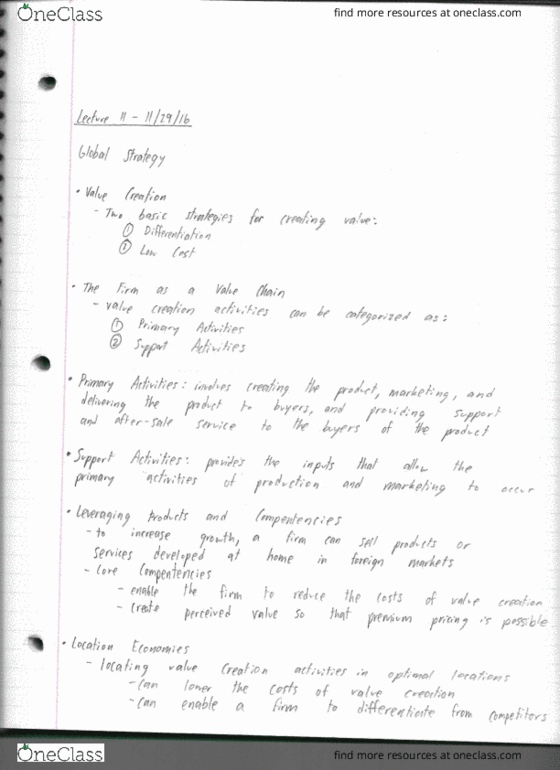 OneClass
find more resources at oneclass.com
Lecture 11 - 11/29/16
Global Strategy
• Value Creation
- Two basic strategies for creating value:
① Differentiation
② Low Cost
• The Firm as a Value Chain
- value creation activities can be categorized as:
① Primary Activities
② Support Activities
• Primary Activities: involves creating the product, marketing, and
delivering the product to buyers, and providing support
and after-sale service to the buyers of the product
• Support Activities: provides the inputs that allow the
primary activities of production and marketing to occur
• Leveraging Products and Compentencies
- to increase growth, a firm can sell products or
services developed at home in foreign markets
- Core Compentencies
- enable the firm to reduce the costs of value creation
- create perceived value so that premium pricing is possible
• Location Economies
- locating value creation activities in optimal locations
- can lower the costs of value creation
- can enable a firm to differentiate from competitors
OneClass
find more resources at oneclass.com